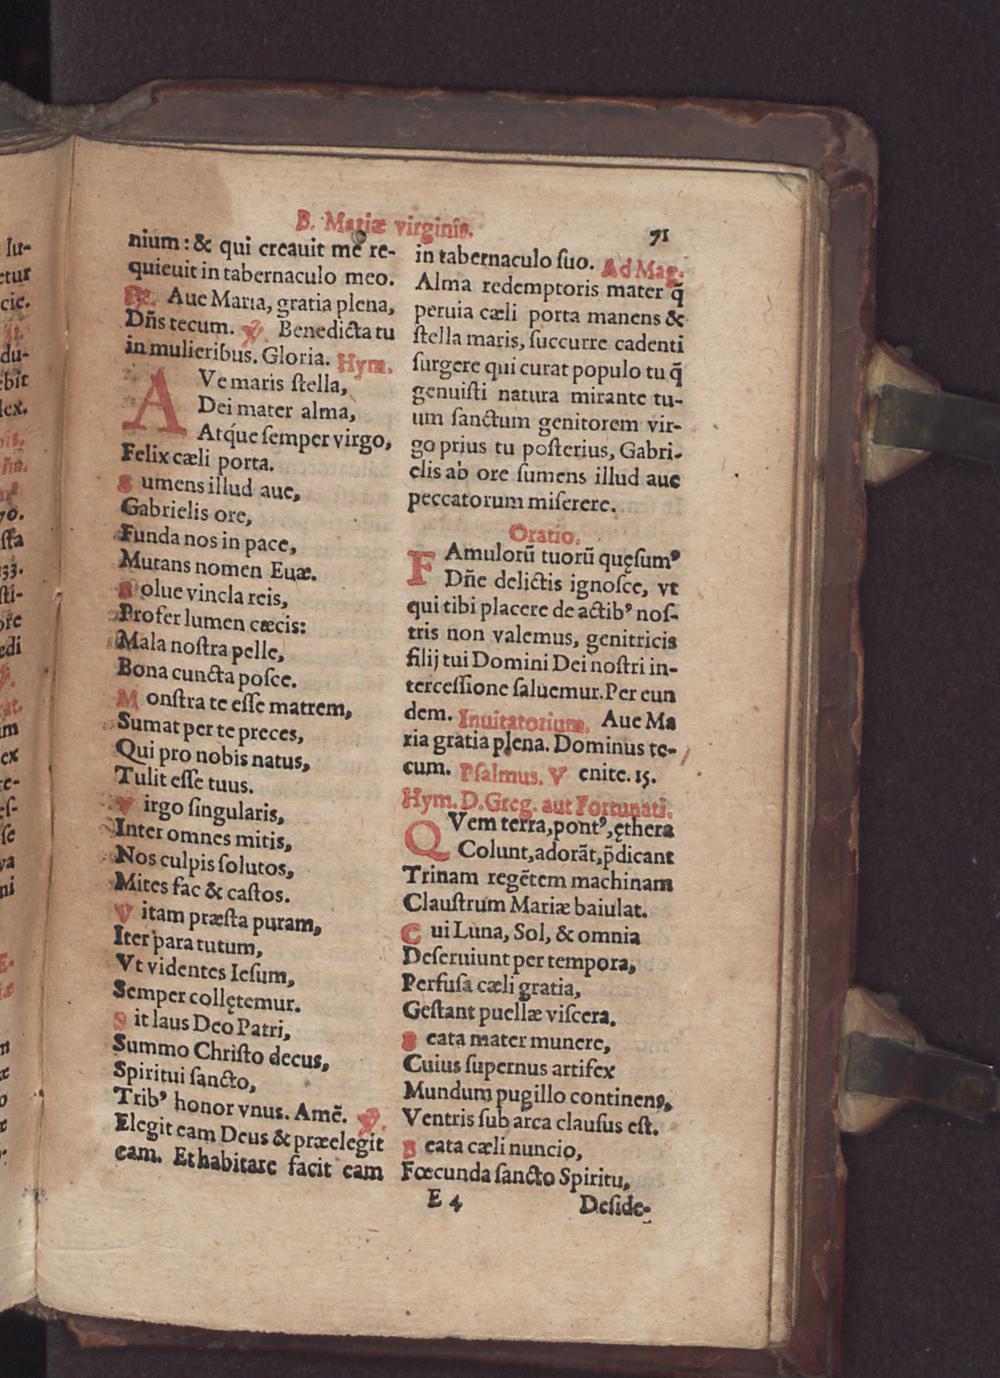 B. Mariæ virginis. 71
nium: & qui creauit me re-
quieuit in tabernaculo meo.
℟. Aue Maria, gratia plena,
Dñs tecum. ℣. Benedicta tu
in mulieribus. Gloria. Hym.
AVe maris ſtella,
Dei mater alma,
Atq́ue ſemper virgo,
Felix cæli porta.
Sumens illud aue,
Gabrielis ore,
Funda nos in pace,
Mutans nomen Euæ.
Solue vincla reis,
Profer lumen cæcis:
Mala noſtra pelle,
Bona cuncta poſce.
Monſtra te eſſe matrem,
Sumat per te preces,
Qui pro nobis natus,
Tulit eſſe tuus.
Virgo ſingularis,
Inter omnes mitis,
Nos culpis ſolutos,
Mites fac & caſtos.
Vitam præſta puram,
Iter para tutum,
Vt videntes Ieſum,
Semper collętemur.
Sit laus Deo Patri,
Summo Chriſto decus,
Spiritui ſancto,
Tribꝰ honor vnus. Amē. ℣.
Elegit eam Deus & præelegit
eam. Et habitare facit eam
in tabernaculo ſuo. Ad Mag.
Alma redemptoris mater q̃
peruia cæli porta manens &
ſtella maris, ſuccurre cadenti
ſurgere qui curat populo tu q̃
genuiſti natura mirante tu-
um ſanctum genitorem vir-
go prius tu poſterius, Gabri-
elis ab ore ſumens illud aue
peccatorum miſerere.
Oratio.
FAmulorũ tuorũ quęſumꝰ
Dñe delictis ignoſce, vt
qui tibi placere de actibꝰ noſ-
tris non valemus, genitricis
filij tui Domini Dei noſtri in-
terceſſione ſaluemur. Per eun
dem. Inuitatorium. Aue Ma
ria gratia plena. Dominus te-
cum. Pſalmus. Venite. 15.
Hym. D. Greg. aut Fortunati.
QVem terra, pontꝰ, ęthera
Colunt, adorãt, p̃dicant
Trinam regētem machinam
Clauſtrum Mariæ baiulat.
Cui Luna, Sol, & omnia
Deſeruiunt per tempora,
Perfuſa cæli gratia,
Geſtant puellæ viſcera.
Beata mater munere,
Cuius ſupernus artifex
Mundum pugillo continens,
Ventris ſub arca clauſus eſt.
Beata cæli nuncio,
Fœcunda ſancto Spiritu,
E 4 Deſide-